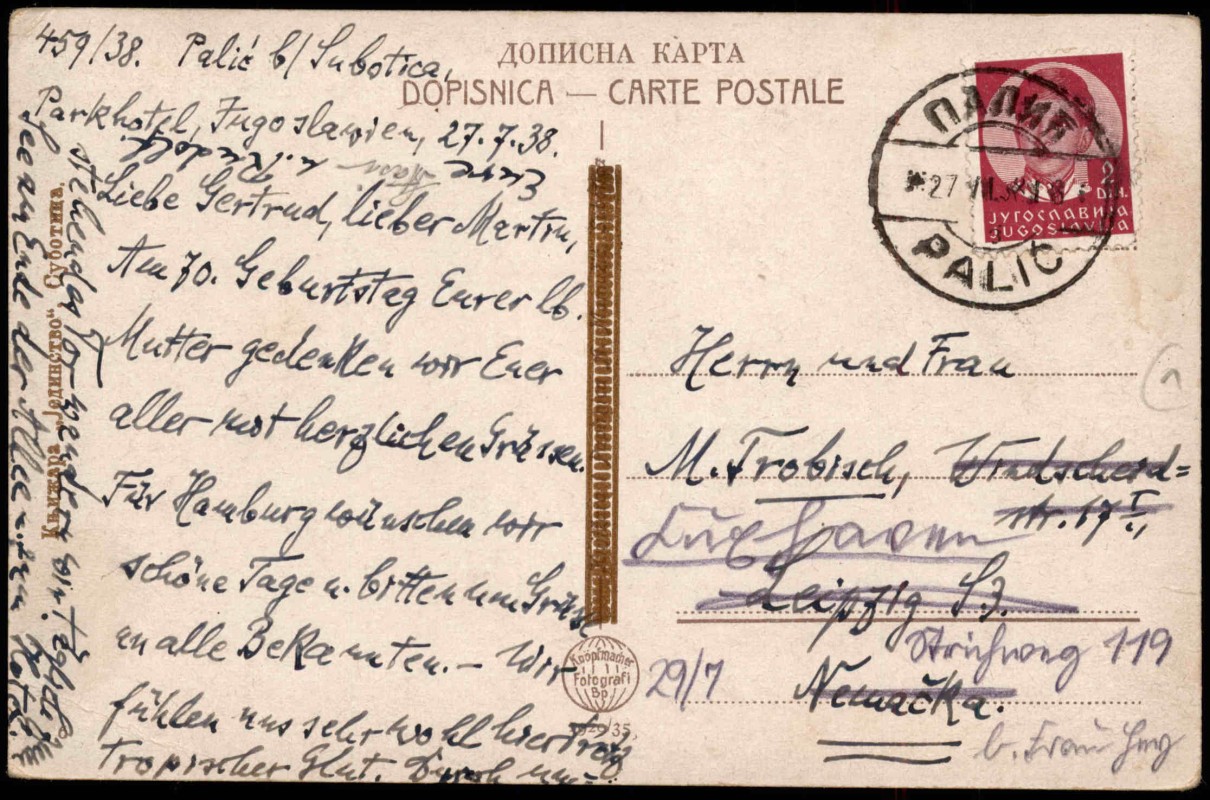 459/38. Palić b/ Subotica,
Parkhotel, Jugoslawien, 27.7.38.
Liebe Gertrud, lieber Martin,
Am 70. Geburtstag Eurer lb.
Mutter gedenken wir Euer
aller mit herzlichen Grüssen.
Für Hamburg wünschen wir
schöne Tage u. bitten um Grüsse
an alle Bekannten. – Wir
fühlen uns sehr wohl hier trotz
tropischer Glut. Durch
am Ende der Allee u. zum
ДОПИСНА КАРТА
DOPISNICA — CARTE POSTALE
Књижара „Јединство“ Суботица.
Knöpfmacher
Fotografi
Bp.
1929/35.
ПАЛИЋ
27 VII
PALIĆ
2
DIN.
ЈУГОСЛАВИЈА
JUGOSLAVIJA
Herrn und Frau
M. Trobisch, Windscheid=
str. 17 I.,
Cuxhaven
Leipzig
Strichweg 119
29/7
Nemačka.
b. Frau